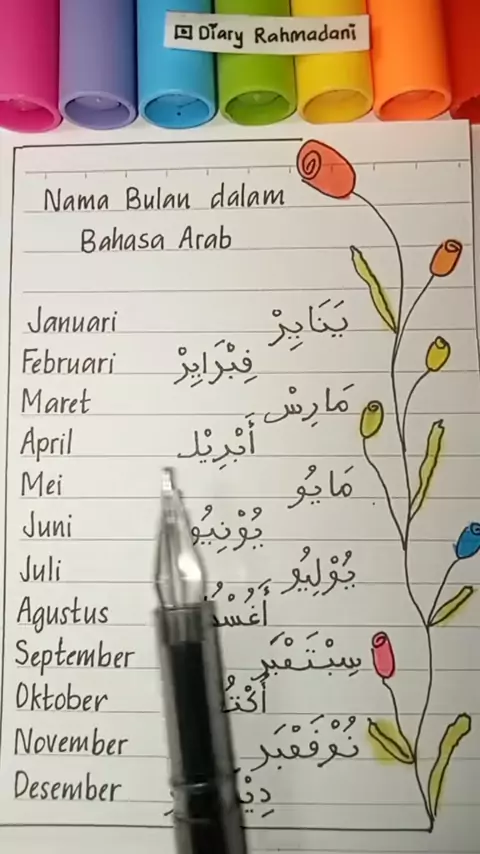 Diary Rahmadani
Nama Bulan dalam
Bahasa Arab
Januari يَنَايِرْ
Februari فِبْرَايِرْ
Maret مَارِسْ
April أَبْرِيْل
Mei مَايُو
Juni يُوْنِيُو
Juli يُوْلِيُو
Agustus
September سِبْتَمْبَر
Oktober
November نُوْفَمْبَر
Desember